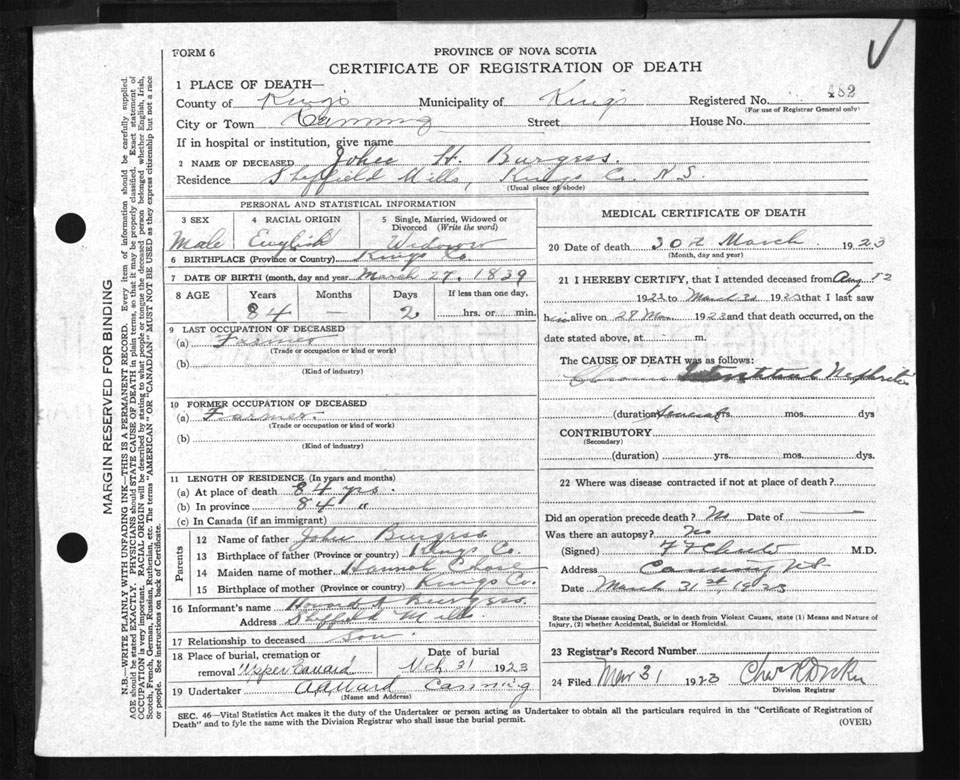 FORM 6
PROVINCE OF NOVA SCOTIA
CERTIFICATE OF REGISTRATION OF DEATH
1 PLACE OF DEATH—
County of Kings Municipality of Kings Registered No. 482
(For use of Registrar General only)
City or Town Canning Street House No.
If in hospital or institution, give name
2 NAME OF DECEASED H. Burgess.
Residence Sheffield Mills, Kings Co. N.S.
(Usual place of abode)
PERSONAL AND STATISTICAL INFORMATION
3 SEX 4 RACIAL ORIGIN 5 Single, Married, Widowed or Divorced (Write the word)
Male English Widower
6 BIRTHPLACE (Province or Country) Kings Co.
7 DATE OF BIRTH (month, day and year) March 27, 1839
8 AGE Years Months Days If less than one day,
84 — 2 hrs. or min.
9 LAST OCCUPATION OF DECEASED
(a) Farmer
(Trade or occupation or kind or work)
(b)
(Kind of industry)
10 FORMER OCCUPATION OF DECEASED
(a) Farmer
(Trade or occupation or kind of work)
(b)
(Kind of industry)
11 LENGTH OF RESIDENCE (In years and months)
(a) At place of death 84 yrs.
(b) In province 84 "
(c) In Canada (if an immigrant)
Parents
12 Name of father John Burgess
13 Birthplace of father (Province or country) Kings Co.
14 Maiden name of mother Hannah Chase
15 Birthplace of mother (Province or country) Kings Co.
16 Informant's name Burgess.
Address Sheffield Mills
17 Relationship to deceased Son
18 Place of burial, cremation or removal Upper Canard Date of burial Mch 31 1923
19 Undertaker Canning
(Name and Address)
MEDICAL CERTIFICATE OF DEATH
20 Date of death 30th March 1923
(Month, day and year)
21 I HEREBY CERTIFY, that I attended deceased from Aug
1922 to March 1923 that I last saw
him alive on 28 Mar 1923 and that death occurred, on
date stated above, at m.
The CAUSE OF DEATH was as follows:
Chronic Interstitial Nephritis
(duration) Several yrs. mos. dys
CONTRIBUTORY
(Secondary)
(duration) yrs. mos. dys.
22 Where was disease contracted if not at place of death?
Did an operation precede death? No Date of —
Was there an autopsy? No
(Signed) M.D.
Address Canning NS
Date March 31st, 1923
State the Disease causing Death, or in death from Violent Causes, state (1) Means and Nature of Injury, (2) whether Accidental, Suicidal or Homicidal.
23 Registrar's Record Number
24 Filed Mar 31 1923
Division Registrar
SEC. 46—Vital Statistics Act makes it the duty of the Undertaker or person acting as Undertaker to obtain all the particulars required in the "Certificate of Registration of
Death" and to fyle the same with the Division Registrar who shall issue the burial permit. (OVER)
MARGIN RESERVED FOR BINDING
N.B.—WRITE PLAINLY WITH UNFADING INK—THIS IS A PERMANENT RECORD. Every item of information should be carefully supplied.
AGE should be stated EXACTLY. PHYSICIANS should STATE CAUSE OF DEATH in plain terms, so that it may be properly classified. Exact statement of
OCCUPATION is very important. RACIAL ORIGIN will be described by stating to what people or tongue the deceased person belonged whether English, Irish,
Scotch, French, German, Russian, Ruthenian, etc. The terms "AMERICAN" or "CANADIAN" MUST NOT BE USED as they express citizenship but not a race
or people. See instructions on back of Certificate.